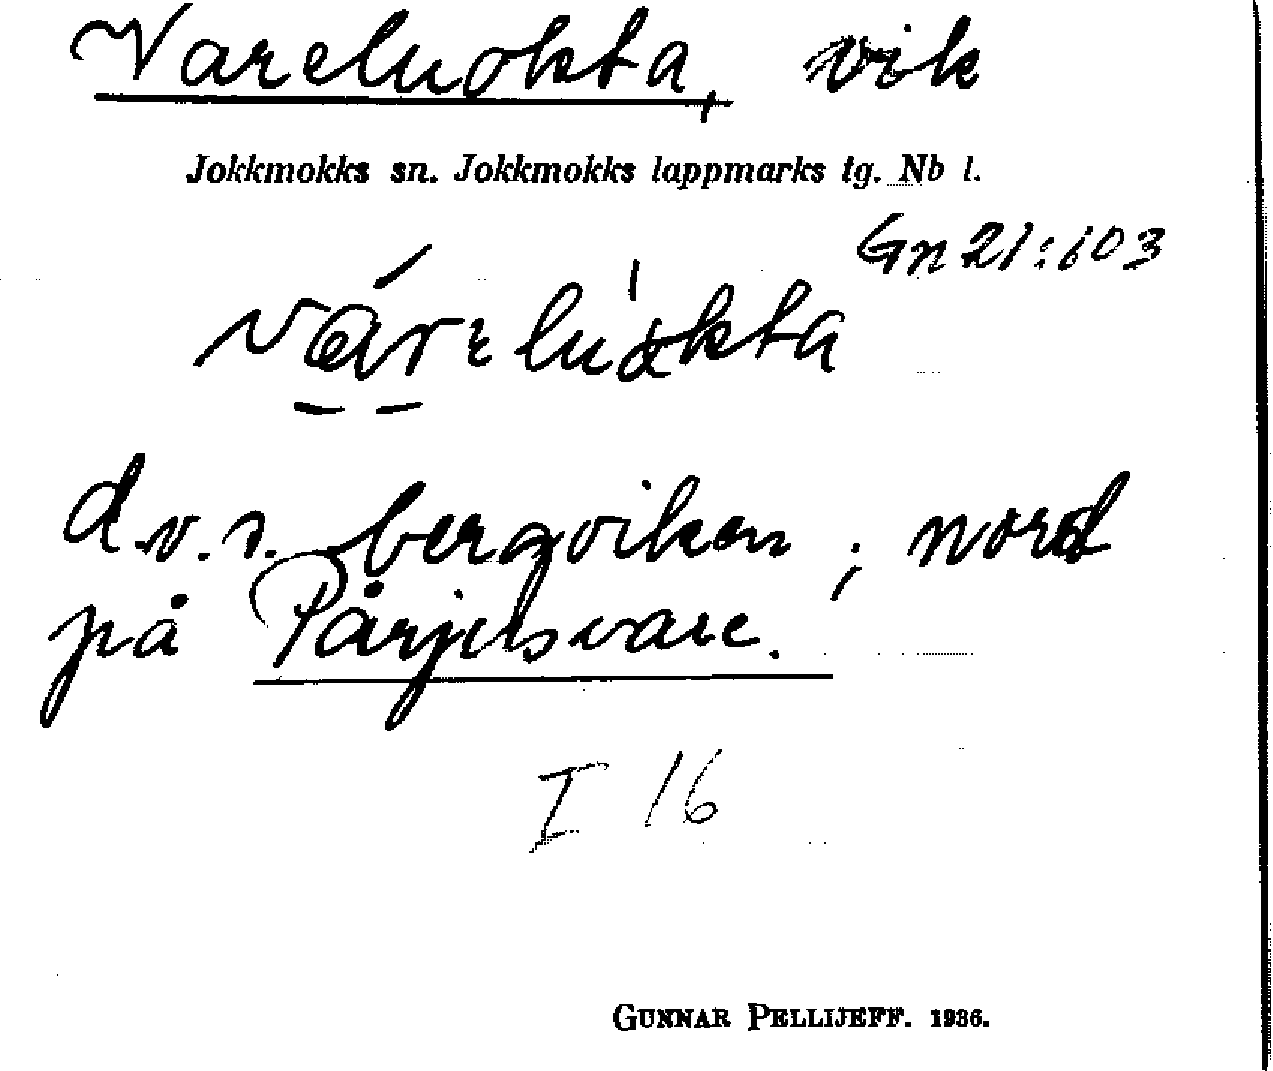 Vareluokta, vik
Jokkmokks sn. Jokkmokks lappmarks tg. Nb l.
Gn 21:103
d.v.s. bergviken; nord
på Pårjelsvare.
I 16
GUNNAR PELLIJEFF. 1936.